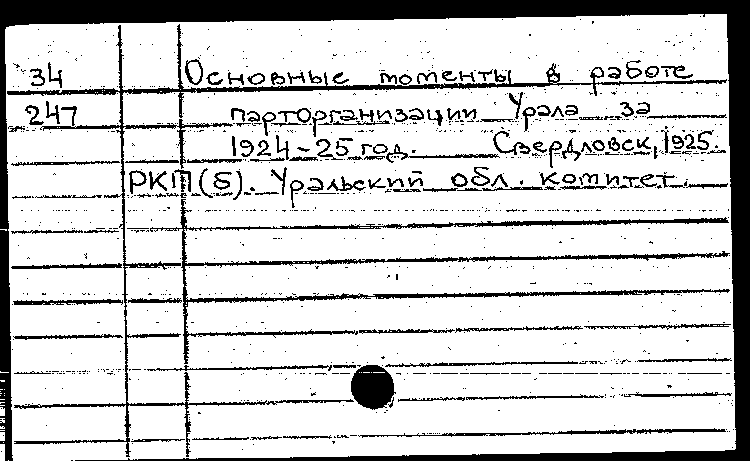 34 Основные моменты в работе
247 парторганизации Урала за
1924-25 год. Свердловск, 1925.
РКП(б). Уральский обл. комитет.